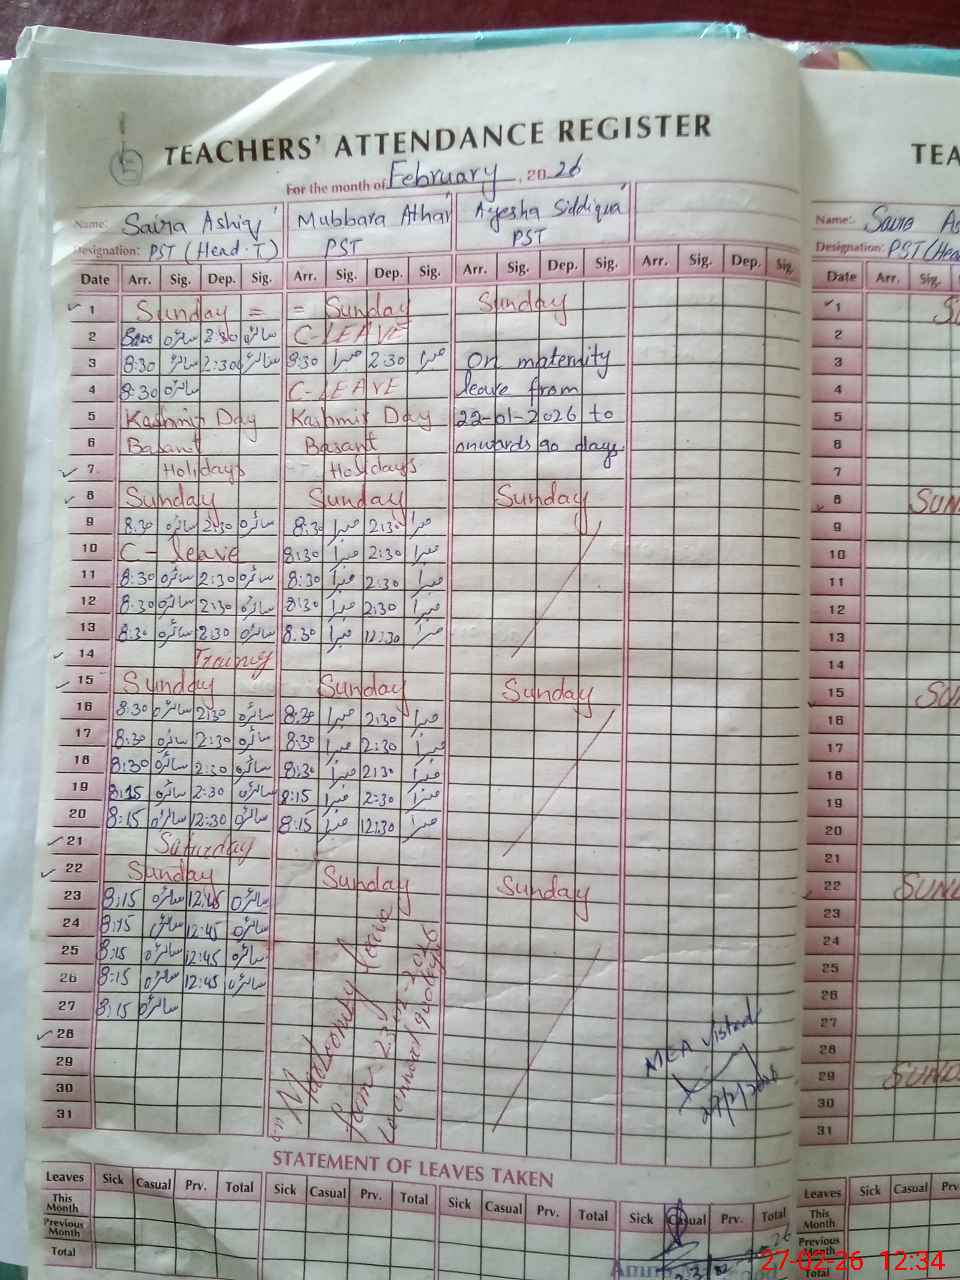 TEACHERS' ATTENDANCE REGISTER
For the month of February, 2026
Name: Saira Ashiq Mubbara Athar Ayesha Siddiqua
Designation: PST (Head.T) PST PST
Date Arr. Sig. Dep. Sig. Arr. Sig. Dep. Sig. Arr. Sig. Dep. Sig. Arr. Sig. Dep. Sig.
1 Sunday = = Sunday Sunday
2 سائرہ 2:30 سائرہ C-LEAVE
3 8:30 سائرہ 2:30 سائرہ 8:30 مبرا 2:30 مبرا on maternity
4 8:30 سائرہ C-LEAVE leave from
5 Kashmir Day Kashmir Day 22-01-2026 to
6 Basant Basant onwards 90 days
7 Holidays Holidays
8 Sunday Sunday Sunday
9 8:30 سائرہ 2:30 سائرہ 8:30 مبرا 2:30 مبرا
10 C-leave 8:30 مبرا 2:30 مبرا
11 8:30 سائرہ 2:30 سائرہ 8:30 مبرا 2:30 مبرا
12 8:30 سائرہ 2:30 سائرہ 8:30 مبرا 2:30 مبرا
13 8:30 سائرہ 2:30 سائرہ 8:30 مبرا 12:30 مبرا
14
15 Sunday Sunday Sunday
16 8:30 سائرہ 2:30 سائرہ 8:30 مبرا 2:30 مبرا
17 8:30 سائرہ 2:30 سائرہ 8:30 مبرا 2:30 مبرا
18 8:30 سائرہ 2:30 سائرہ 8:30 مبرا 2:30 مبرا
19 8:15 سائرہ 2:30 سائرہ 8:15 مبرا 2:30 مبرا
20 8:15 سائرہ 12:30 سائرہ 8:15 مبرا 12:30 مبرا
21 Saturday
22 Sunday Sunday Sunday
23 8:15 سائرہ 12:45 سائرہ
24 8:15 سائرہ 12:45 سائرہ
25 8:15 سائرہ 12:45 سائرہ
26 8:15 سائرہ 12:45 سائرہ
27 8:15 سائرہ
28
29
30
31
on leave
from
MEA visted
27/2/2026
STATEMENT OF LEAVES TAKEN
Leaves Sick Casual Prv. Total Sick Casual Prv. Total Sick Casual Prv. Total Sick Casual Prv. Total
This Month
Previous Month
Total
TEA
Name:
Designation: PST
Date Arr. Sig.
1
2
3
4
5
6
7
8 SUN
9
10
11
12
13
14
15 SUN
16
17
18
19
20
21
22 SUN
23
24
25
26
27
28
29 SUN
30
31
Leaves Sick Casual
This Month
Previous Month
Total
27-02-26 12:34